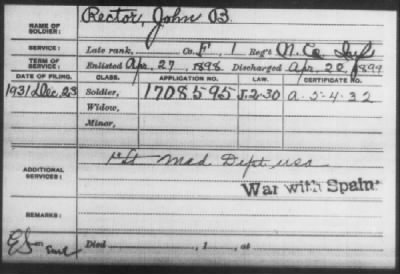 NAME OF SOLDIER: Rector, John B.
SERVICE: Late rank, Co. F, 1 Reg't N. Ca. Inf.
TERM OF SERVICE: Enlisted Apr. 27, 1898 Discharged Apr. 22, 1899
DATE OF FILING. CLASS. APPLICATION NO. LAW. CERTIFICATE NO.
1931 Dec. 23 Soldier, 1708595 J-2-30 A-5-4-32
Widow,
Minor,
ADDITIONAL SERVICES: Med Dept USA
War with Spain
REMARKS:
Died , 1 , at